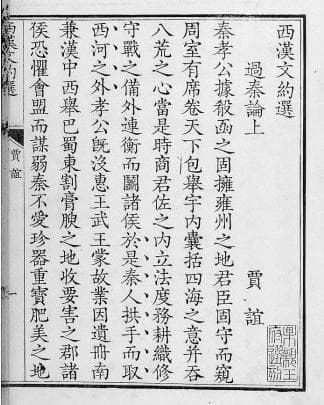 西漢文約選
過秦論上 賈誼
秦孝公據殽函之固擁雍州之地君臣固守而窺
周室有席卷天下包舉宇內囊括四海之意并吞
八荒之心當是時商君佐之內立法度務耕織修
守戰之備外連衡而鬭諸侯於是秦人拱手而取
西河之外孝公既沒惠王武王蒙故業因遺冊南
兼漢中西舉巴蜀東割膏腴之地收要害之郡諸
侯恐懼會盟而謀弱秦不愛珍器重寶肥美之地
賈誼 一